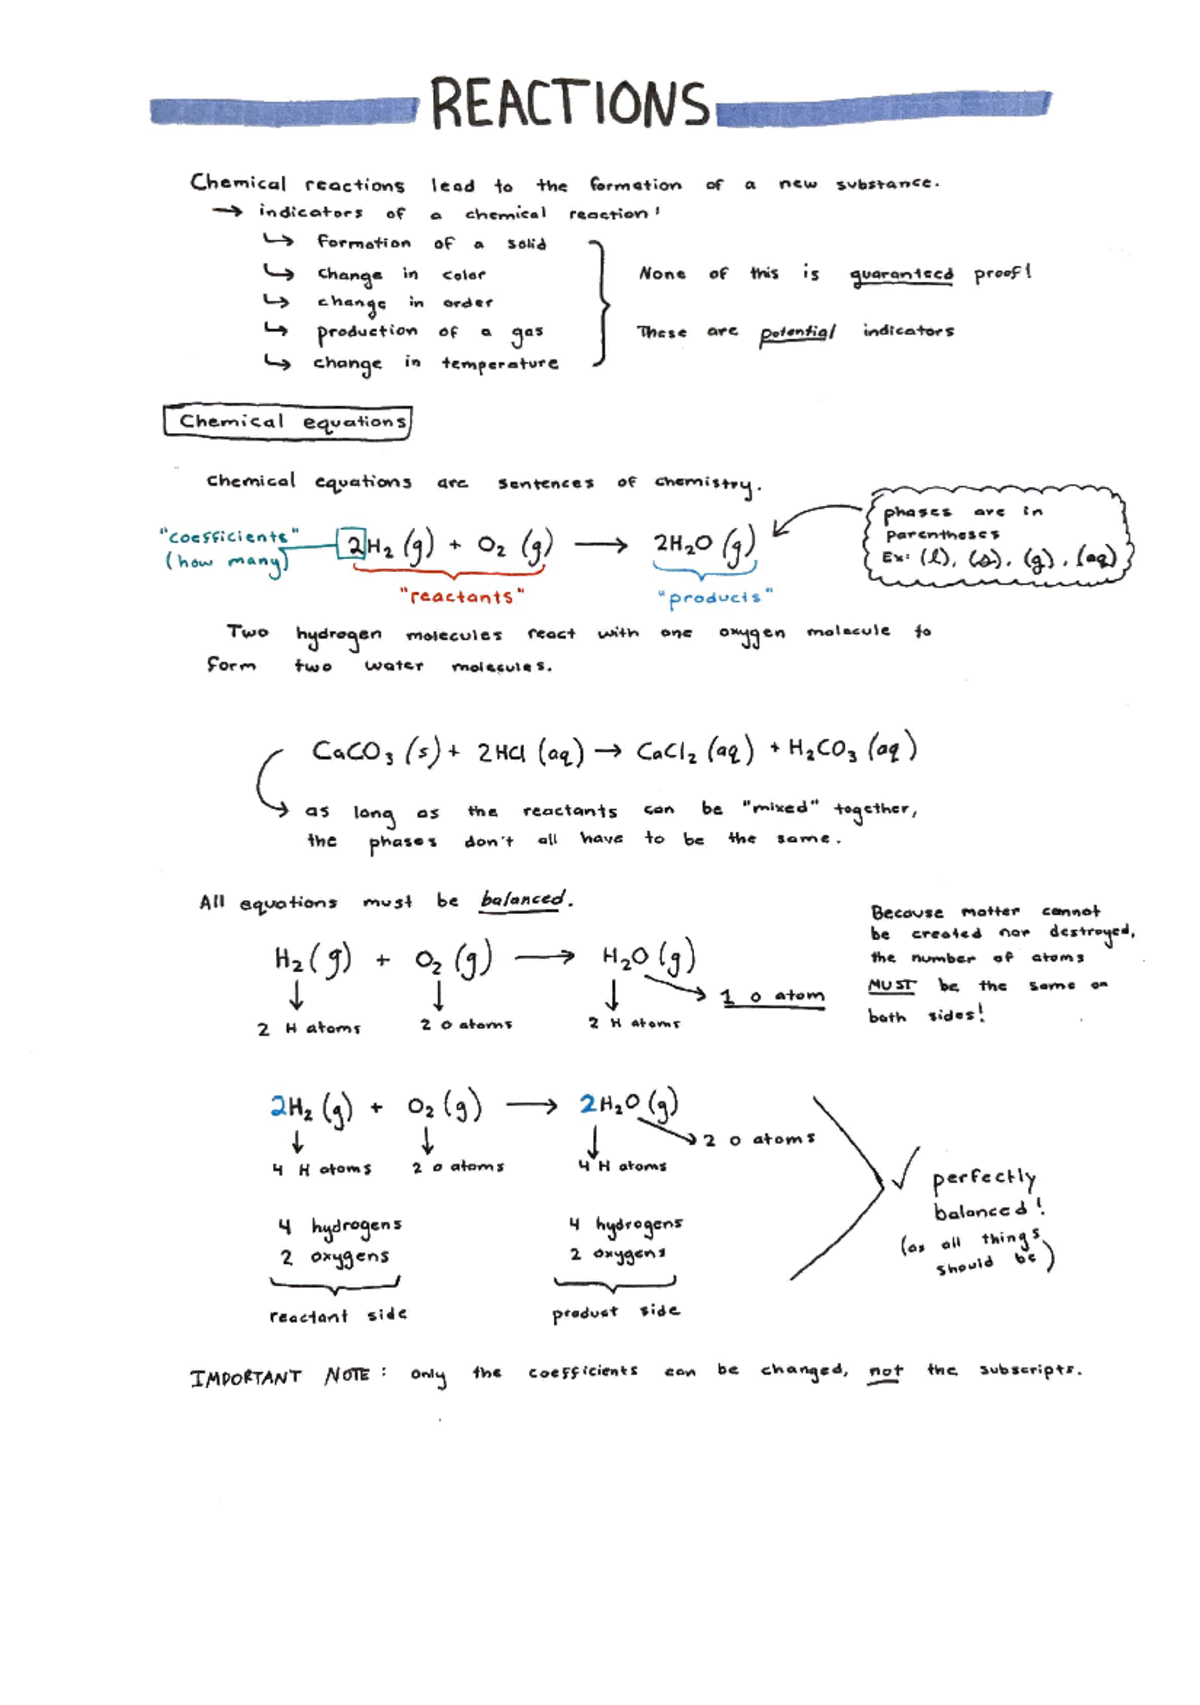 REACTIONS
Chemical reactions lead to the formation of a new substance.
→ indicators of a chemical reaction!
↳ formation of a solid
↳ change in color
↳ change in order
↳ production of a gas
↳ change in temperature
None of this is guaranteed proof!
These are potential indicators
Chemical equations
Chemical equations are sentences of chemistry.
"coefficients"
(how many)
2H₂ (g) + O₂ (g) → 2H₂O (g)
"reactants"
"products"
phases are in
parentheses
Ex: (l), (s), (g), (aq)
Two hydrogen molecules react with one oxygen molecule to
form two water molecules.
CaCO₃ (s) + 2HCl (aq) → CaCl₂ (aq) + H₂CO₃ (aq)
as long as the reactants can be "mixed" together,
the phases don't all have to be the same.
All equations must be balanced.
H₂ (g) + O₂ (g) → H₂O (g)
1 O atom
2 H atoms
2 O atoms
2 H atoms
Because matter cannot
be created nor destroyed,
the number of atoms
MUST be the same on
both sides!
2H₂ (g) + O₂ (g) → 2H₂O (g)
2 O atoms
4 H atoms
2 O atoms
4 H atoms
4 hydrogens
2 oxygens
reactant side
4 hydrogens
2 oxygens
product side
✓ perfectly
balanced!
(as all things
should be)
IMPORTANT NOTE: only the coefficients can be changed, not the subscripts.